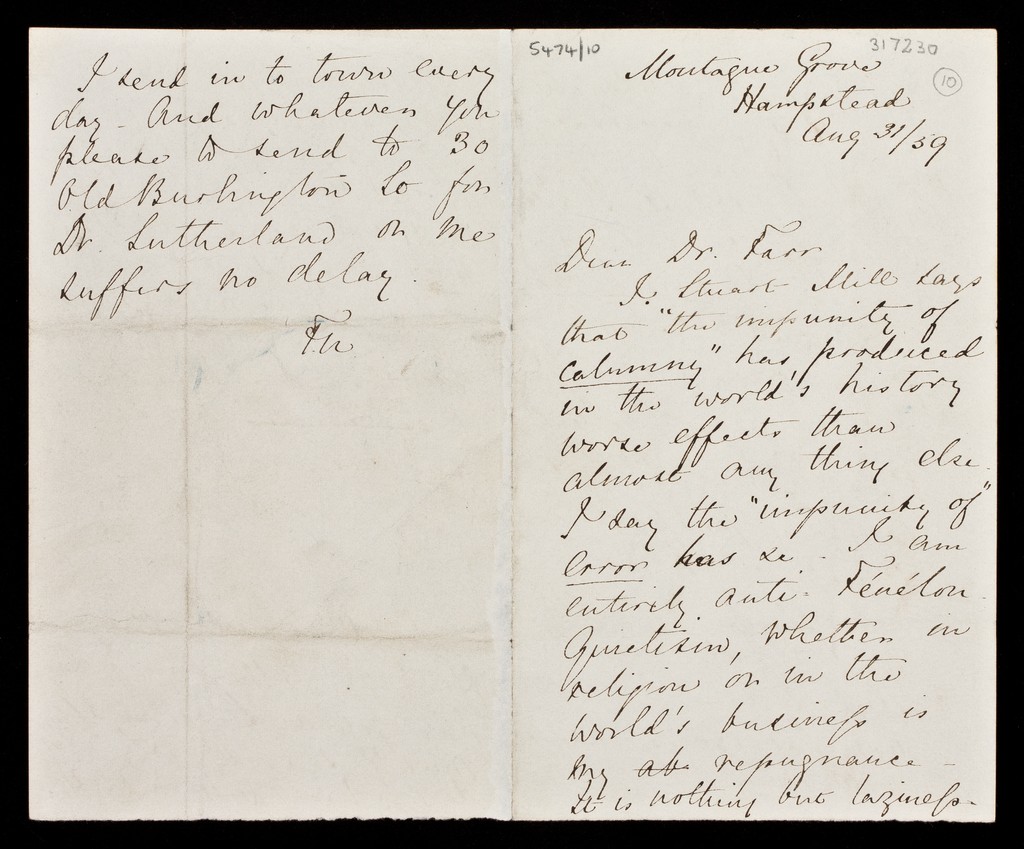 I send in to town every
day - And whatever you
please to send to 30
Old Burlington St for
Dr. Sutherland or me
suffers no delay.
5474/10
317230
10
Montague Grove
Hampstead
Aug 31/59
Dear Dr. Farr
J. Stuart Mill says
that "the impunity of
calumny" has produced
in the world's history
worse effects than
almost any thing else.
I say the "impunity of"
error has so - I am
entirely anti-Fénélon.
Quietism, whether in
religion or in the
world's business is
my ab repugnance -
It is nothing but laziness.